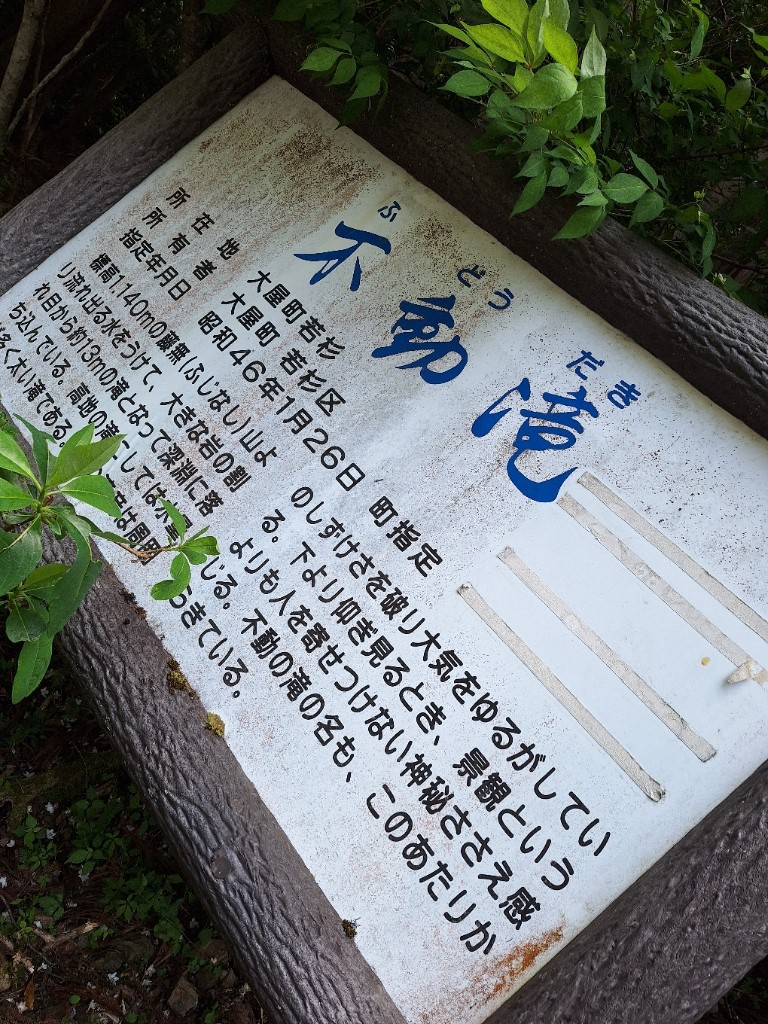 ふ どう だき
不動滝
所在地 大屋町若杉
所有者 大屋町 若杉区
指定年月日 昭和46年1月26日 町指定
標高1,140mの藤無(ふじなし)山よ
り流れ出る水をうけて、大きな岩の割
れ目から約13mの滝となって深淵に落
ち込んでいる。高地の滝としては水
多く太い滝である。は周囲
のしずけさを破り大気をゆるがしてい
る。下より仰ぎ見るとき、景観という
よりも人を寄せつけない神秘ささえ感
じる。不動の滝の名も、このあたりか
らきている。